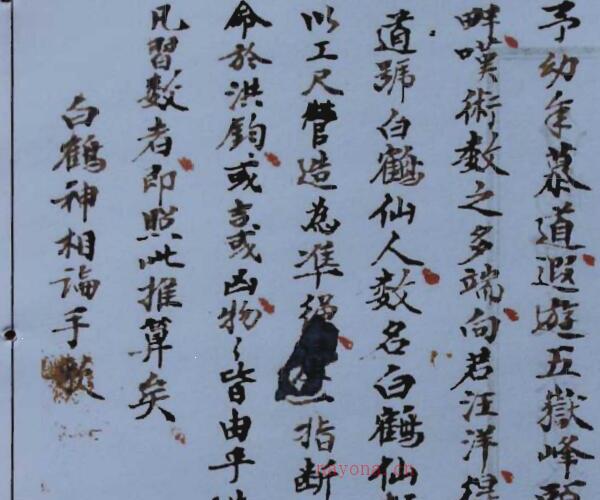 予幼年慕道遐遊五嶽峰
畔嘆術数之多端向若汪洋
道號白鶴仙人数名白鶴仙
以工尺營造為準繩 指断
命於洪鈞或吉或凶物〻皆由乎
凡習数者即照此推算矣
白鶴神相論手
nayona.cn